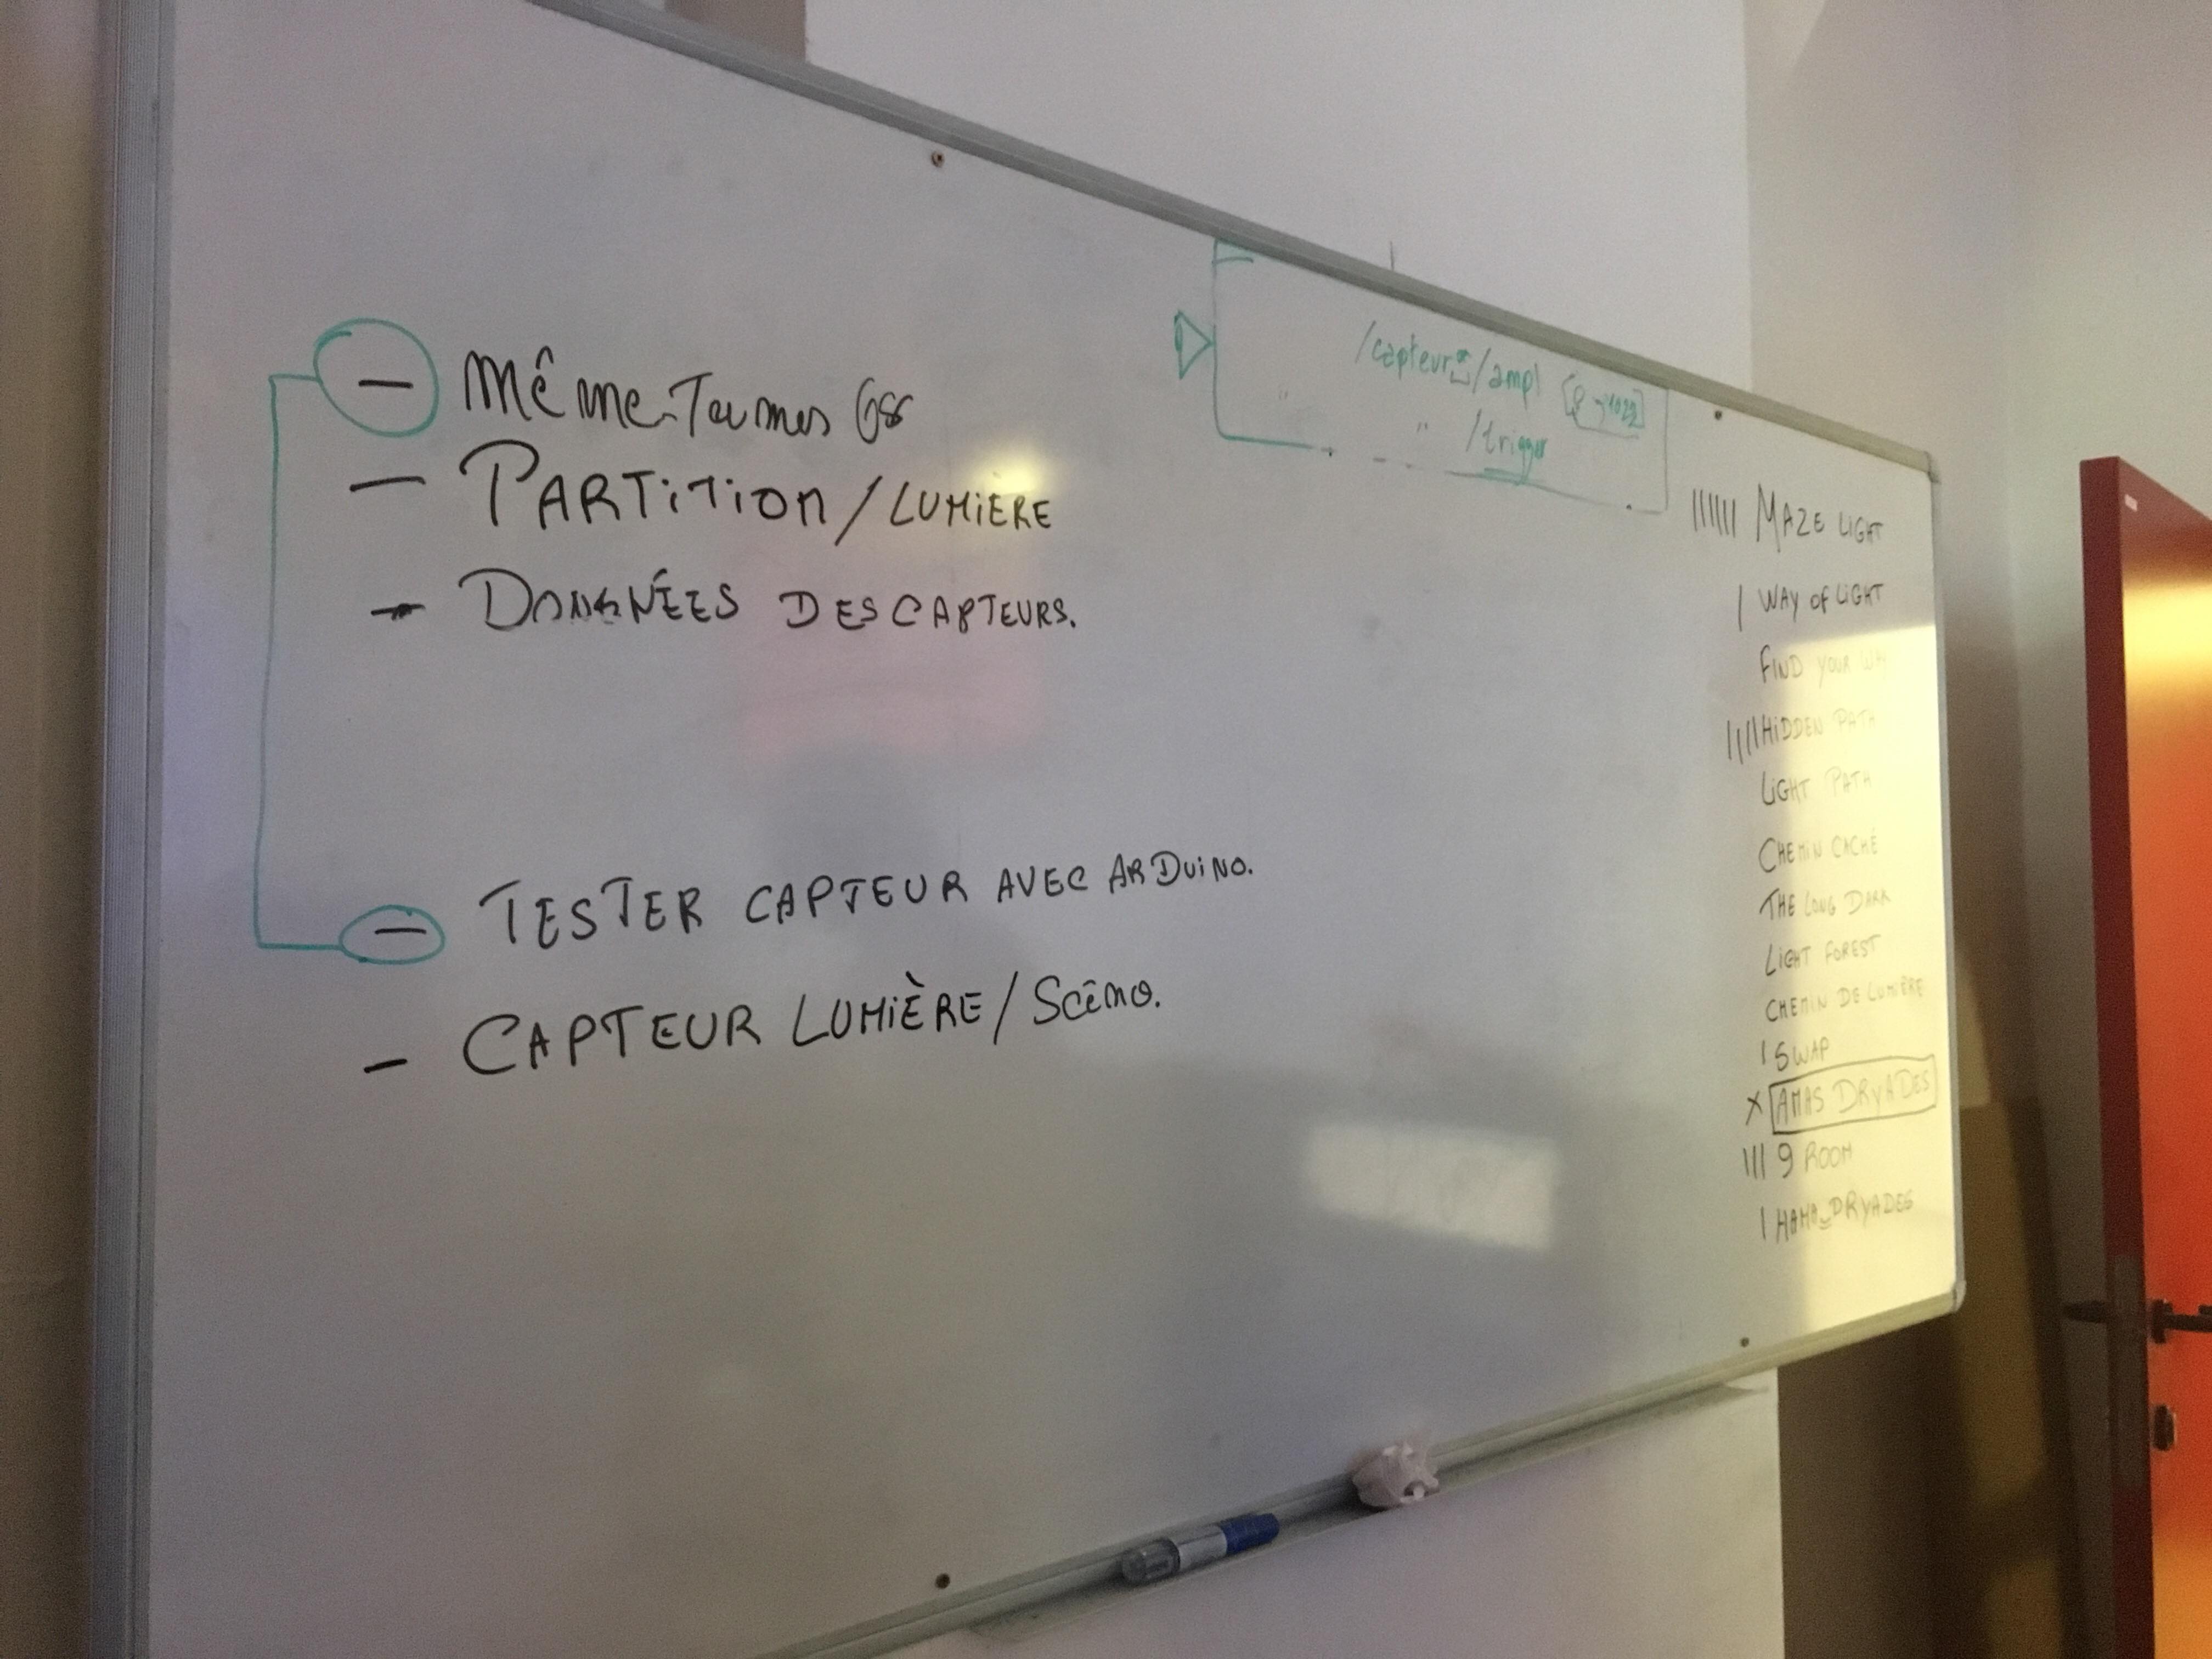 — Même
— PARTITION / LUMIÈRE
— DONNÉES DES CAPTEURS.
— TESTER CAPTEUR AVEC ARDUINO.
— CAPTEUR LUMIÈRE / Scéno.
/capteur /ampl
" " /trigger
|||||| MAZE LIGHT
| WAY OF LIGHT
FIND YOUR WAY
|||| HIDDEN PATH
LIGHT PATH
CHEMIN CACHÉ
THE LONG DARK
LIGHT FOREST
CHEMIN DE LUMIÈRE
| SWAP
X AMAS DRYADES
||| 9 ROOM
| HAMA_DRYADES